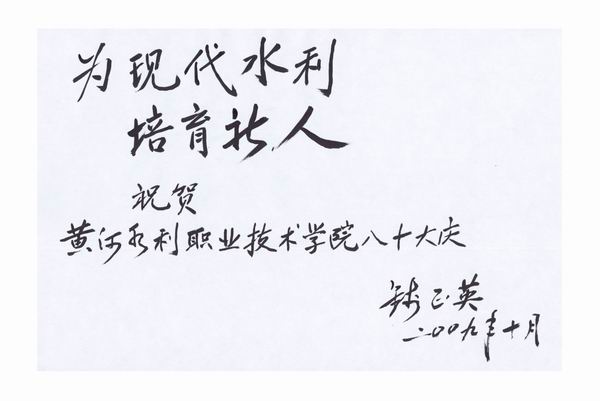 为现代水利
培育新人
祝贺
黄河水利职业技术学院八十大庆
钱正英
二〇〇九年十月